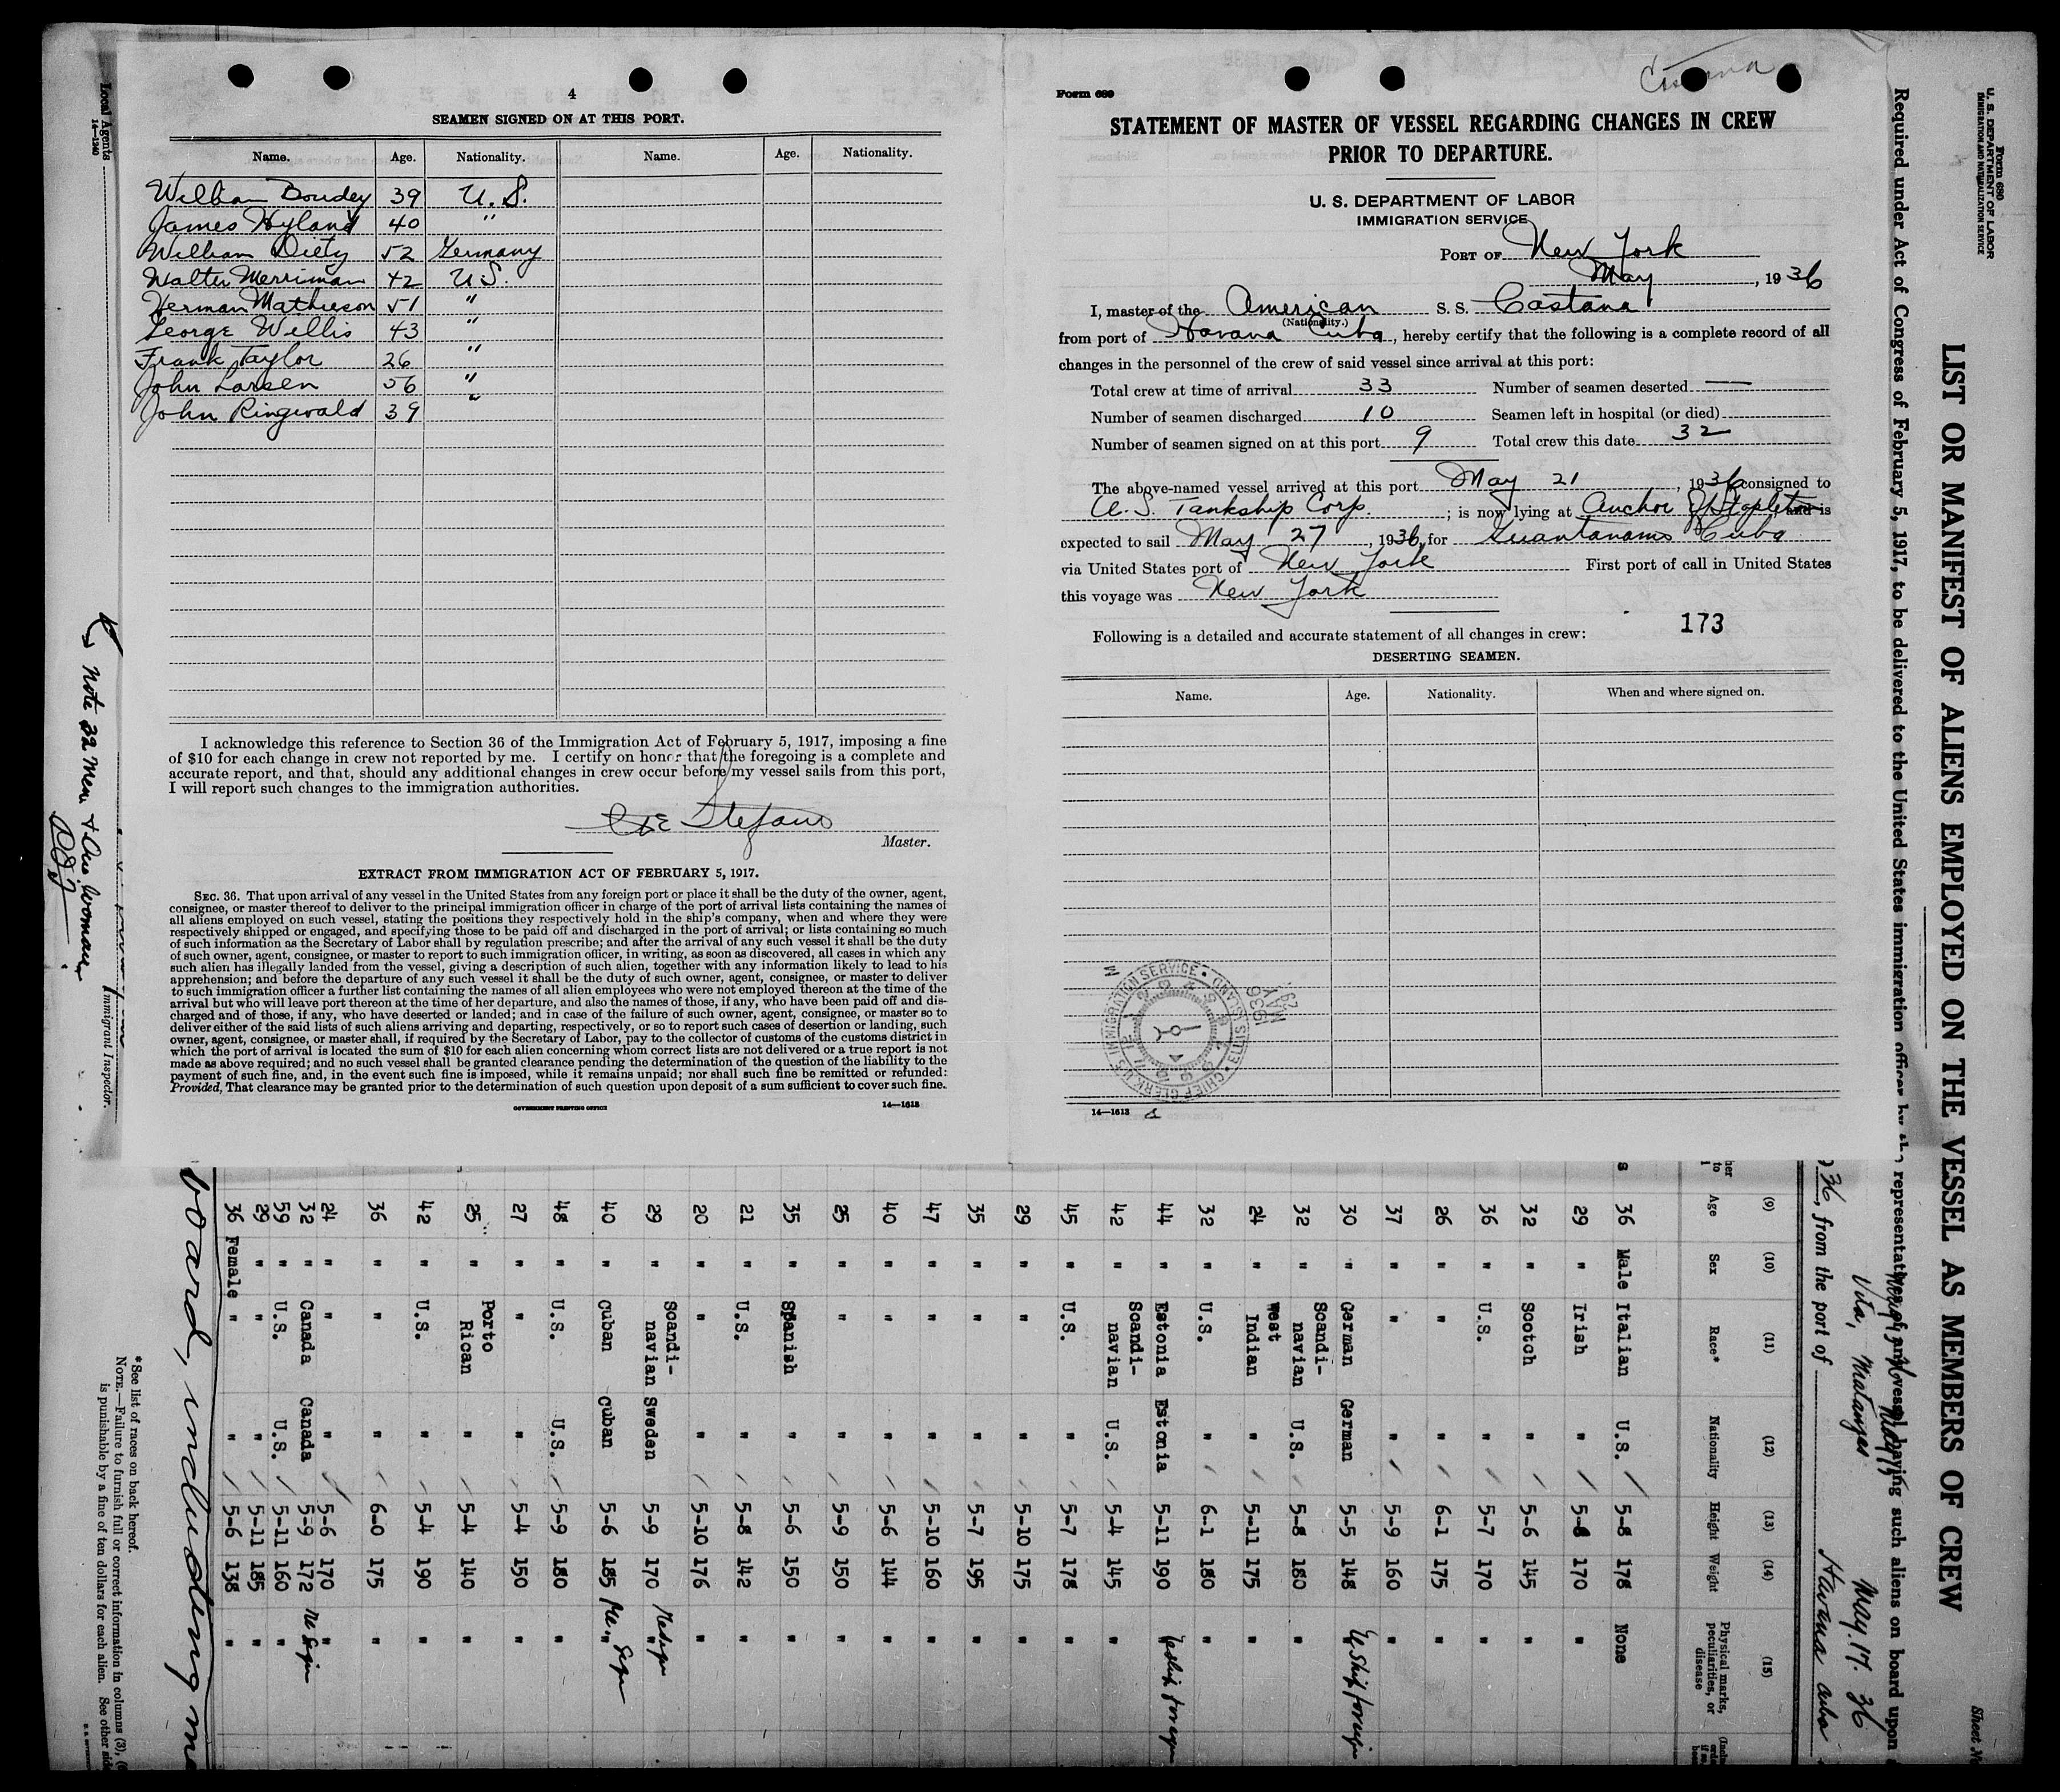 4
SEAMEN SIGNED ON AT THIS PORT.
Name. Age. Nationality. Name. Age. Nationality.
William Boudey 39 U.S.
James Hyland 40 "
William Diety 52 Germany
Walter Merriman 42 U.S.
Herman Mathieson 51 "
George Willis 43 "
Frank Taylor 26 "
John Larsen 56 "
John Ringwald 39 "
I acknowledge this reference to Section 36 of the Immigration Act of February 5, 1917, imposing a fine
of $10 for each change in crew not reported by me. I certify on honor that the foregoing is a complete and
accurate report, and that, should any additional changes in crew occur before my vessel sails from this port,
I will report such changes to the immigration authorities.
Stefano
Master.
EXTRACT FROM IMMIGRATION ACT OF FEBRUARY 5, 1917.
SEC. 36. That upon arrival of any vessel in the United States from any foreign port or place it shall be the duty of the owner, agent,
consignee, or master thereof to deliver to the principal immigration officer in charge of the port of arrival lists containing the names of
all aliens employed on such vessel, stating the positions they respectively hold in the ship's company, when and where they were
respectively shipped or engaged, and specifying those to be paid off and discharged in the port of arrival; or lists containing so much
of such information as the Secretary of Labor shall by regulation prescribe; and after the arrival of any such vessel it shall be the duty
of such owner, agent, consignee, or master to report to such immigration officer, in writing, as soon as discovered, all cases in which any
such alien has illegally landed from the vessel, giving a description of such alien, together with any information likely to lead to his
apprehension; and before the departure of any such vessel it shall be the duty of such owner, agent, consignee, or master to deliver
to such immigration officer a further list containing the names of all alien employees who were not employed thereon at the time of the
arrival but who will leave port thereon at the time of her departure, and also the names of those, if any, who have been paid off and dis-
charged and of those, if any, who have deserted or landed; and in case of the failure of such owner, agent, consignee, or master so to
deliver either of the said lists of such aliens arriving and departing, respectively, or so to report such cases of desertion or landing, such
owner, agent, consignee, or master shall, if required by the Secretary of Labor, pay to the collector of customs of the customs district in
which the port of arrival is located the sum of $10 for each alien concerning whom correct lists are not delivered or a true report is not
made as above required; and no such vessel shall be granted clearance pending the determination of the question of the liability to the
payment of such fine, and, in the event such fine is imposed, while it remains unpaid; nor shall such fine be remitted or refunded:
Provided, That clearance may be granted prior to the determination of such question upon deposit of a sum sufficient to cover such fine.
GOVERNMENT PRINTING OFFICE 14—1613
Form 689
STATEMENT OF MASTER OF VESSEL REGARDING CHANGES IN CREW
PRIOR TO DEPARTURE.
U. S. DEPARTMENT OF LABOR
IMMIGRATION SERVICE
PORT OF New York
May , 1936
I, master of the American S. S. Castana
(Nationality.)
from port of Havana Cuba, hereby certify that the following is a complete record of all
changes in the personnel of the crew of said vessel since arrival at this port:
Total crew at time of arrival 33 Number of seamen deserted —
Number of seamen discharged 10 Seamen left in hospital (or died)
Number of seamen signed on at this port 9 Total crew this date 32
The above-named vessel arrived at this port May 21, 1936 consigned to
U.S. Tankship Corp.; is now lying at Anchor Stapleton and is
expected to sail May 27, 1936, for Guantanamo Cuba
via United States port of New York First port of call in United States
this voyage was New York
173
Following is a detailed and accurate statement of all changes in crew:
DESERTING SEAMEN.
Name. Age. Nationality. When and where signed on.
CHIEF CLERK U.S. IMMIGRATION SERVICE • ELLIS ISLAND
1936 MAY 29
14—1613
Local Agents
14—1240
Note 32 Men + One Woman
Immigrant Inspector.
Form 680
U. S. DEPARTMENT OF LABOR
IMMIGRATION AND NATURALIZATION SERVICE
Sheet No
LIST OR MANIFEST OF ALIENS EMPLOYED ON THE VESSEL AS MEMBERS OF CREW
Required under Act of Congress of February 5, 1917, to be delivered to the United States immigration officer by the representatives of any vessel having such aliens on board upon
Vita, Matanzas May. 17. 36
36, from the port of Havana Cuba
(9) (10) (11) (12) (13) (14) (15)
Age Sex Race* Nationality Height Weight Physical marks, peculiarities, or disease
36 Male Italian U.S. 5-8 178 None
29 " Irish " 5-8 170 "
32 " Scotch " 5-6 145 "
36 " U.S. " 5-7 170 "
26 " " " 6-1 175 "
37 " " " 5-9 160 "
30 " German German 5-5 148 "
32 " Scandi-navian U.S. 5-8 180 "
24 " West Indian " 5-11 175 "
32 " U.S. " 6-1 180 "
44 " Estonia Estonia 5-11 190 "
42 " Scandi-navian U.S. 5-4 145 "
45 " U.S. " 5-7 178 "
29 " " " 5-10 175 "
35 " " " 5-7 195 "
47 " " " 5-10 160 "
40 " " " 5-6 144 "
25 " " " 5-9 150 "
35 " Spanish " 5-6 150 "
21 " U.S. " 5-8 142 "
20 " " " 5-10 176 "
29 " Scandi-navian Sweden 5-9 170 "
40 " Cuban Cuban 5-6 185 "
48 " U.S. U.S. 5-9 180 "
27 " " " 5-4 150 "
25 " Porto Rican " 5-4 140 "
42 " U.S. " 5-4 190 "
36 " " " 6-0 175 "
24 " " " 5-6 170 "
32 " Canada Canada 5-9 172
59 " U.S. U.S. 5-11 160 "
29 " " " 5-11 185 "
36 Female " " 5-6 138 "
board, including
*See list of races on back hereof.
NOTE.—Failure to furnish full or correct information in columns (3),
is punishable by a fine of ten dollars for each alien. See other side